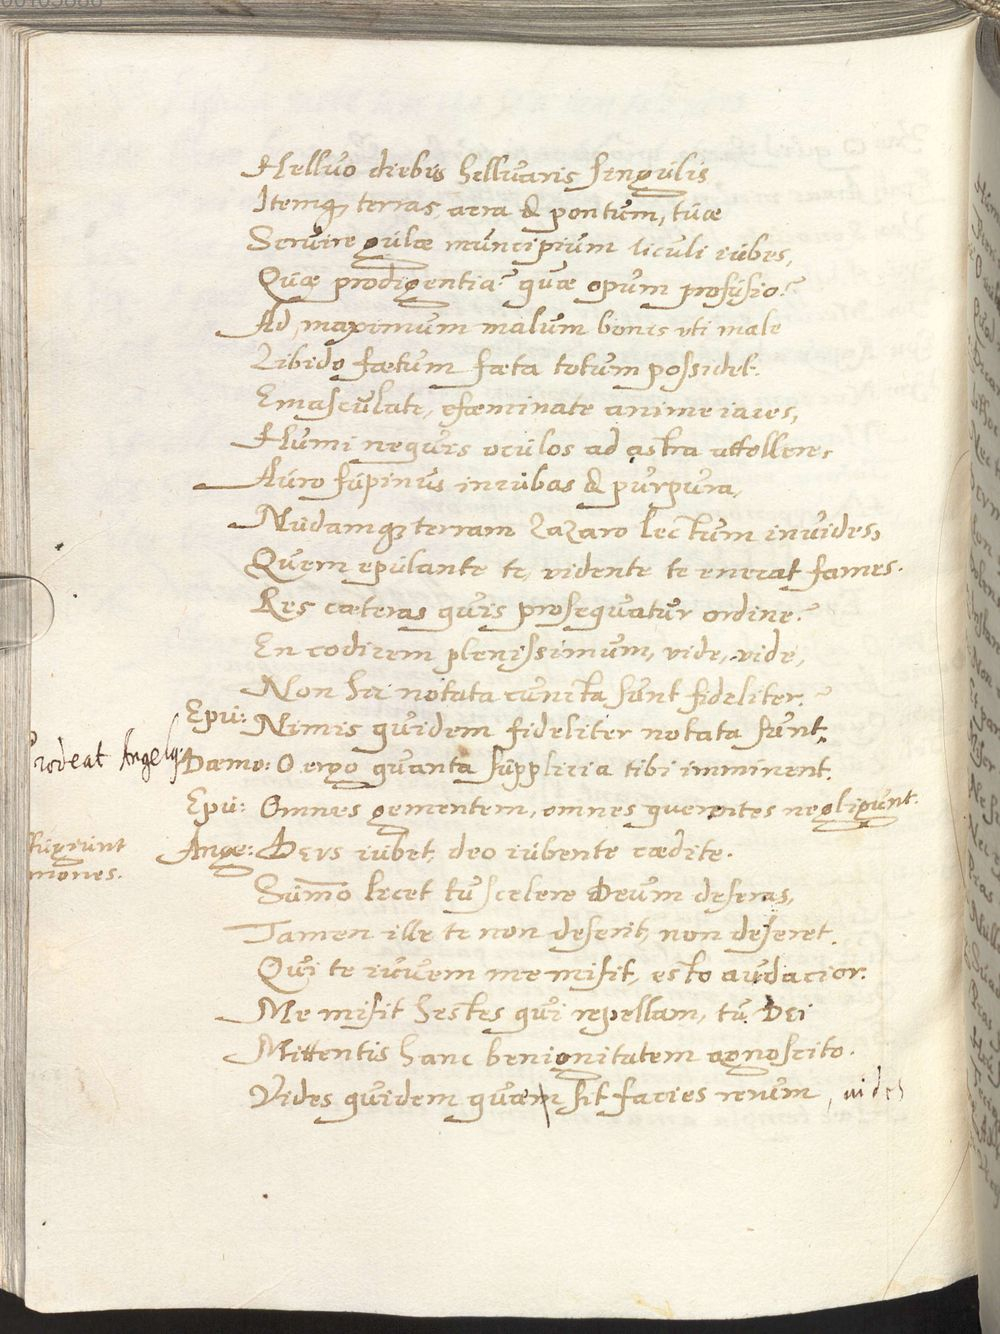 Helluo diebus helluaris singulis
Itemq; terras, aera & pontum, tuæ
Seruire gulæ muncipium uiculi iubes,
Quæ prodigentia? quæ opum profusio?
Ad maximum malum bonis vti male
Libido fætum fæta totum possidet.
Emasculate, efæminate animi iaces,
Humi nequis oculos ad astra attollere,
Auro supinus incubas & purpura,
Nudamq; terram Lazaro lectum inuides,
Quem epulante te, vidente te enecat fames.
Res cæteras quis prosequatur ordine?
En codicem plenissimum, vide, vide,
Non hic notata cuncta sunt fideliter?
Epu: Nimis quidem fideliter notata sunt.
Prodeat Angelus
Dæmo: O ergo quanta supplicia tibi imminent.
Epu: Omnes gementem, omnes querentes negligunt.
Ange: Deus iubet, deo iubente cædite.
fugiunt
mones.
Summo licet tu scelere Deum deseras,
Tamen ille te non deserit, non deseret.
Qui te iuuem me misit, esto audacior.
Me misit hostes qui repellam, tu Dei
Mittentis hanc benignitatem agnoscito.
Vides quidem quæ sit facies rerum, uides